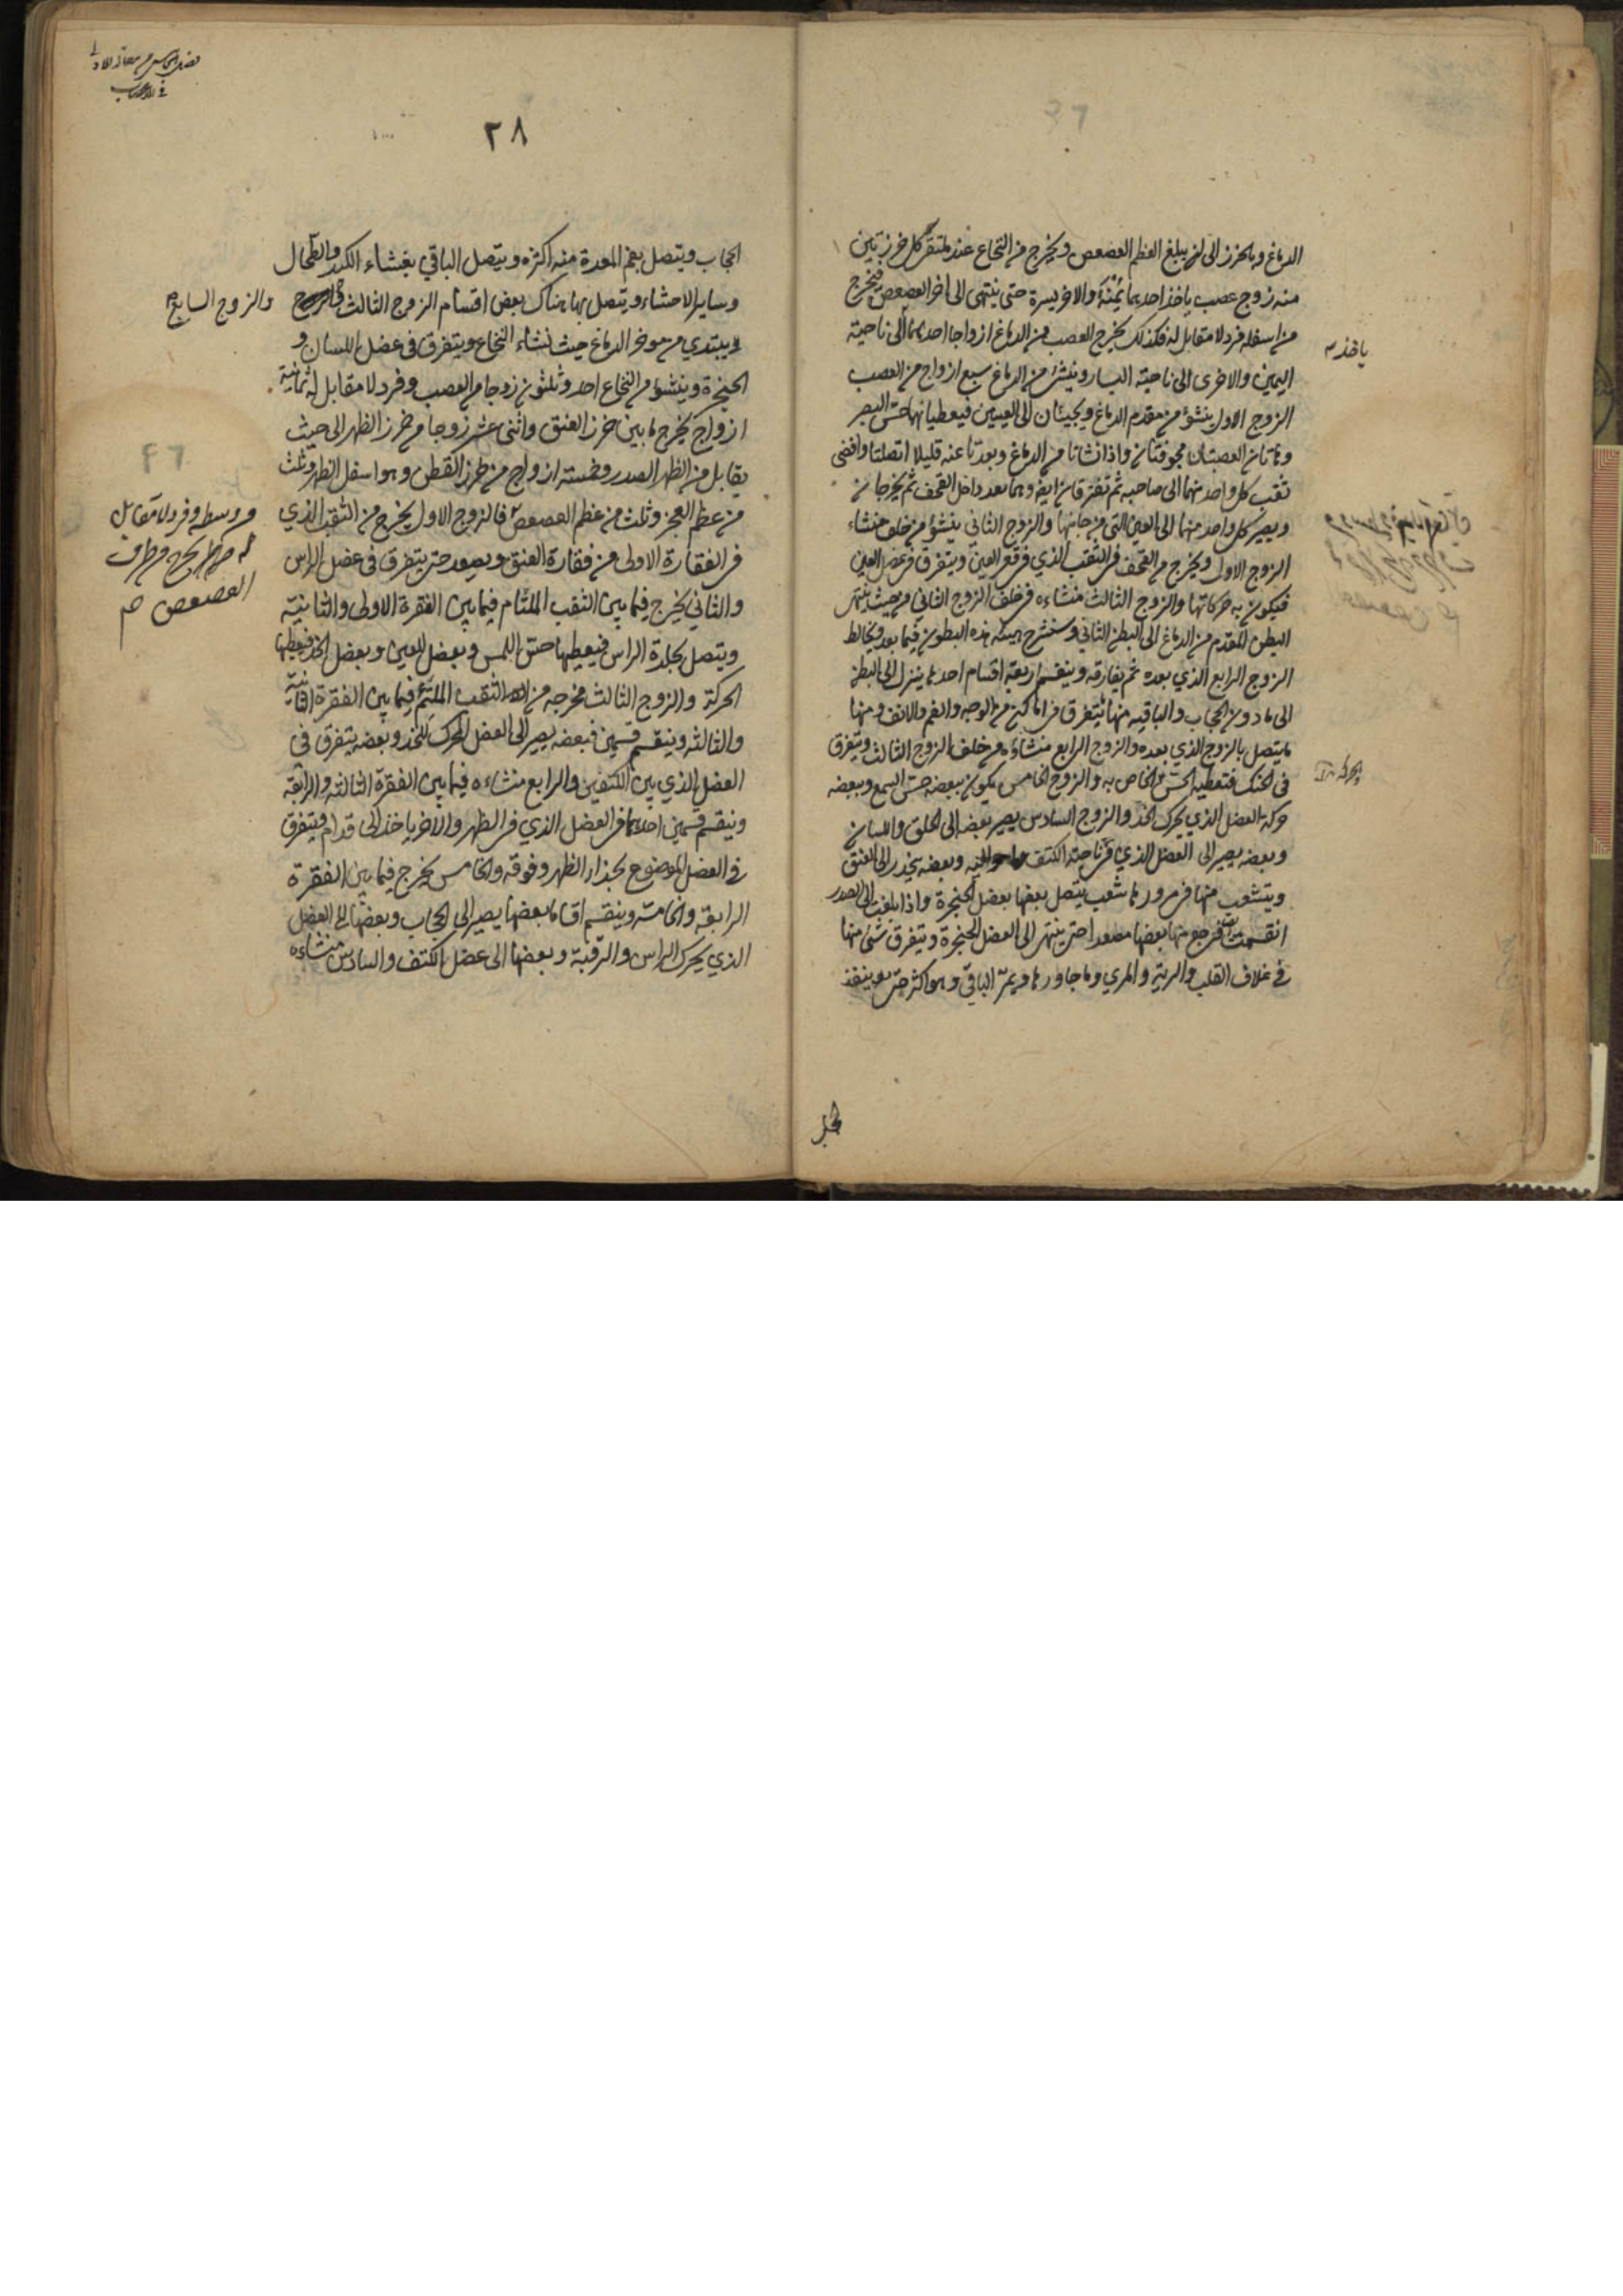 الدماغ وبالخرز الى ان يبلغ العظم العصعص ويخرج من النخاع عند ملتقى كل خرزتين
منه زوج عصب ياخذ احدهما يمنة والاخر يسرة حتى ينتهى الى اخر العصعص فيخرج
من اسفله فرد لا مقابل له فكذلك يخرج العصب من الدماغ ازواجا احدهما الى ناحية
ياخذ
اليمين والاخرى الى ناحية اليسار وينشئ من الدماغ سبع ازواج من العصب
الزوج الاول ينشؤ من مقدم الدماغ ويجيئان الى العينين فيعطيانهما حس البصر
وهاتان العصبتان مجوفتان واذا نشاتا من الدماغ وبعدتا عنه قليلا اتصلتا وافضى
ثقب كل واحد منهما الى صاحبه ثم تفترقان ايضا وهما بعد داخل القحف ثم يخرجان
ويصير كل واحد منهما الى العين التى من جانبها والزوج الثاني ينشؤ من خلف منشاء
الزوج الاول ويخرج من القحف فى الثقب الذي فى قعر العين ويتفرق فى عضل العين
فيكون به حركاتها والزوج الثالث منشاءه من خلف الزوج الثاني من حيث ينتهى
البطن المقدم من الدماغ الى البطن الثاني وسنشرح هيئة هذه البطون فيما بعد ويخالط
الزوج الرابع الذي بعده ثم يفارقه وينقسم اربعة اقسام احدها ينزل الى البطن
الى ما دون الحجاب والباقيه منها يتفرق فى اماكن من الوجه والفم والانف ومنها
ما يتصل بالزوج الذي بعده والزوج الرابع منشاءه من خلف الزوج الثالث ويتفرق
فى الحنك فتعطيه الحس الخاص به والزوج الخامس يكون ببعضه حس السمع وببعضه
حركة العضل الذي يحرك الخد والزوج السادس يصير بعضه الى الحلق واللسان
وبعضه يصير الى العضل الذي فى ناحية الكتف وما حواليه وبعضه ينحدر الى العنق
ويتشعب منها فى مرورها شعب يتصل بعضها بعضل الحنجرة واذا بلغت الى الصدر
انقسمت فرجع منها بعضها مصعدا حتى ينتهى الى العضل الحنجرة ويتفرق شئ منها
فى غلاف القلب والرية والمري وما جاورها ويمر الباقي وهو اكثر حتى ينفذ
٢٨
الحجاب ويتصل بفم المعدة منه اكثره ويتصل الباقي بغشاء الكبد والطحال
وساير الاحشاء ويتصل بها هناك بعض اقسام الزوج الثالث
والزوج السابع
يبتدي من موخر الدماغ حيث منشاء النخاع ويتفرق فى عضل اللسان و
الحنجرة وينشؤ من النخاع احد وثلثون زوجا من العصب وفرد لا مقابل له ثمانية
ازواج يخرج ما بين خرز العنق واثنى عشر زوجا من خرز الظهر الى حيث
يقابل من الظهر الصدر وخمسة ازواج من خرز القطن وهو اسفل الظهر وثلث
من عظم العجز وثلث من عظم العصعص فالزوج الاول يخرج من الثقب الذي
من وسطه وفرد لا مقابل
له يخرج من طرف
العصعص
فى الفقارة الاولى من فقارة العنق ويصعد حتى يتفرق فى عضل الراس
والثاني يخرج فيما بين الثقب الملتئم فيما بين الفقرة الاولى والثانية
ويتصل بجلدة الراس فيعطيها حس اللمس وبعضل العين وبعضل الخد فيعطيها
الحركة والزوج الثالث مخرجه من الثقب الملتئم فيما بين الفقرة الثانية
والثالثه وينقسم قسمين فبعضه يصير الى العضل المحرك للخد وبعضه يتفرق فى
العضل الذي بين الكتفين والرابع منشاءه فيما بين الفقرة الثالثه والرابعة
وينقسم قسمين احدهما فى العضل الذي فى الظهر والاخر ياخذ الى قدام ويتفرق
فى العضل الموضوع بحذاء الظهر وفوقه والخامس يخرج فيما بين الفقرة
الرابعة والخامسة وينقسم اقساما بعضها يصير الى الحجاب وبعضها الى العضل
الذي يحرك الراس والرقبة وبعضها الى عضل الكتف والسادس منشاءه